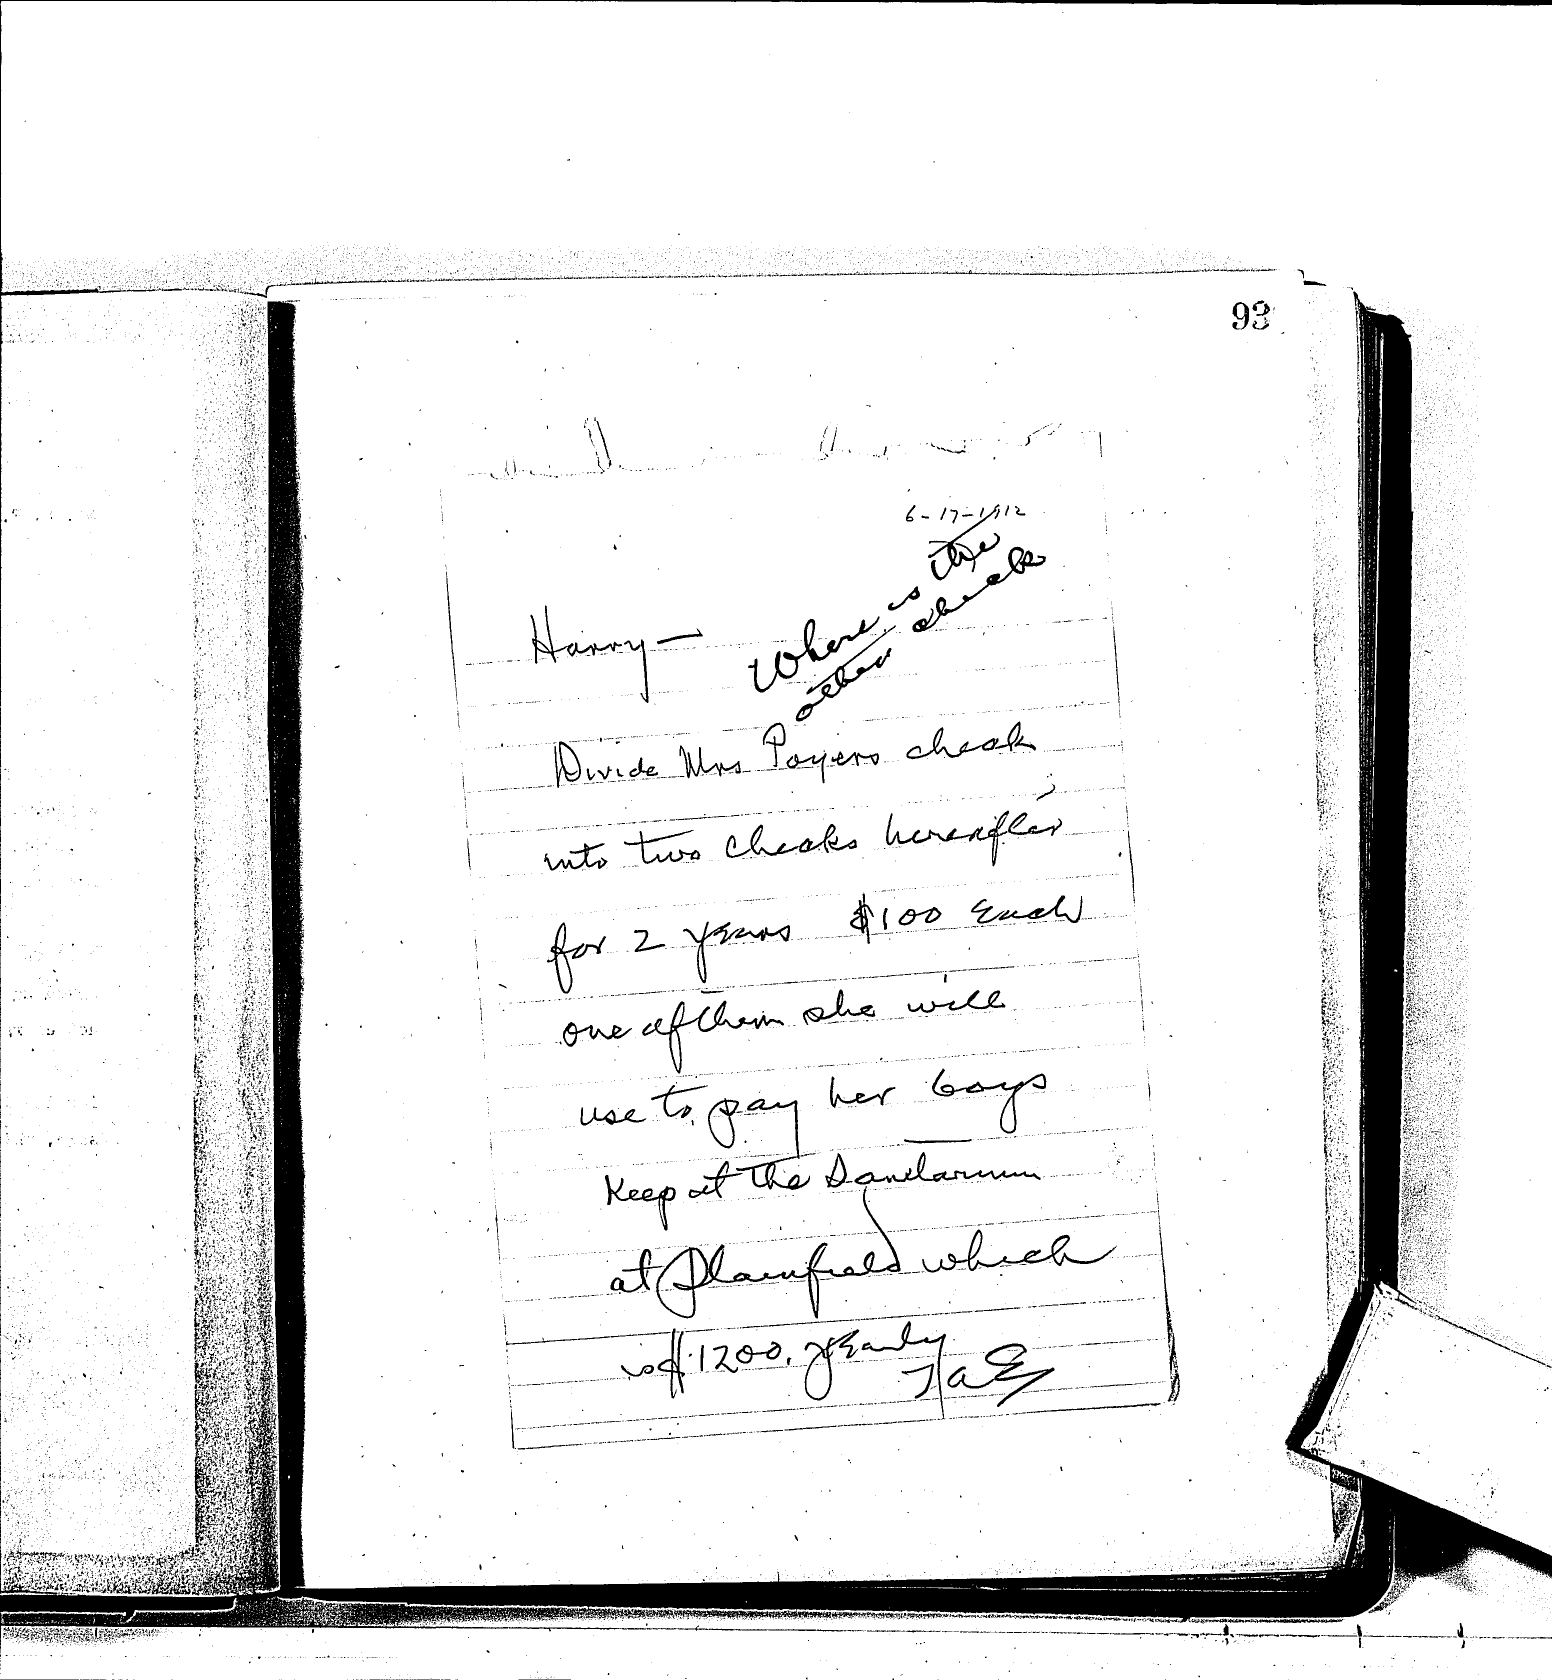 93
6-17-1912
Where is the
other check
Harry—
Divide Mrs Poyers check
into two checks hereafter
for 2 years $100 Each
one of them she will
use to pay her boys
Keep at the Sanitarium
at Plainfield which
is $1200. yearly
TAE